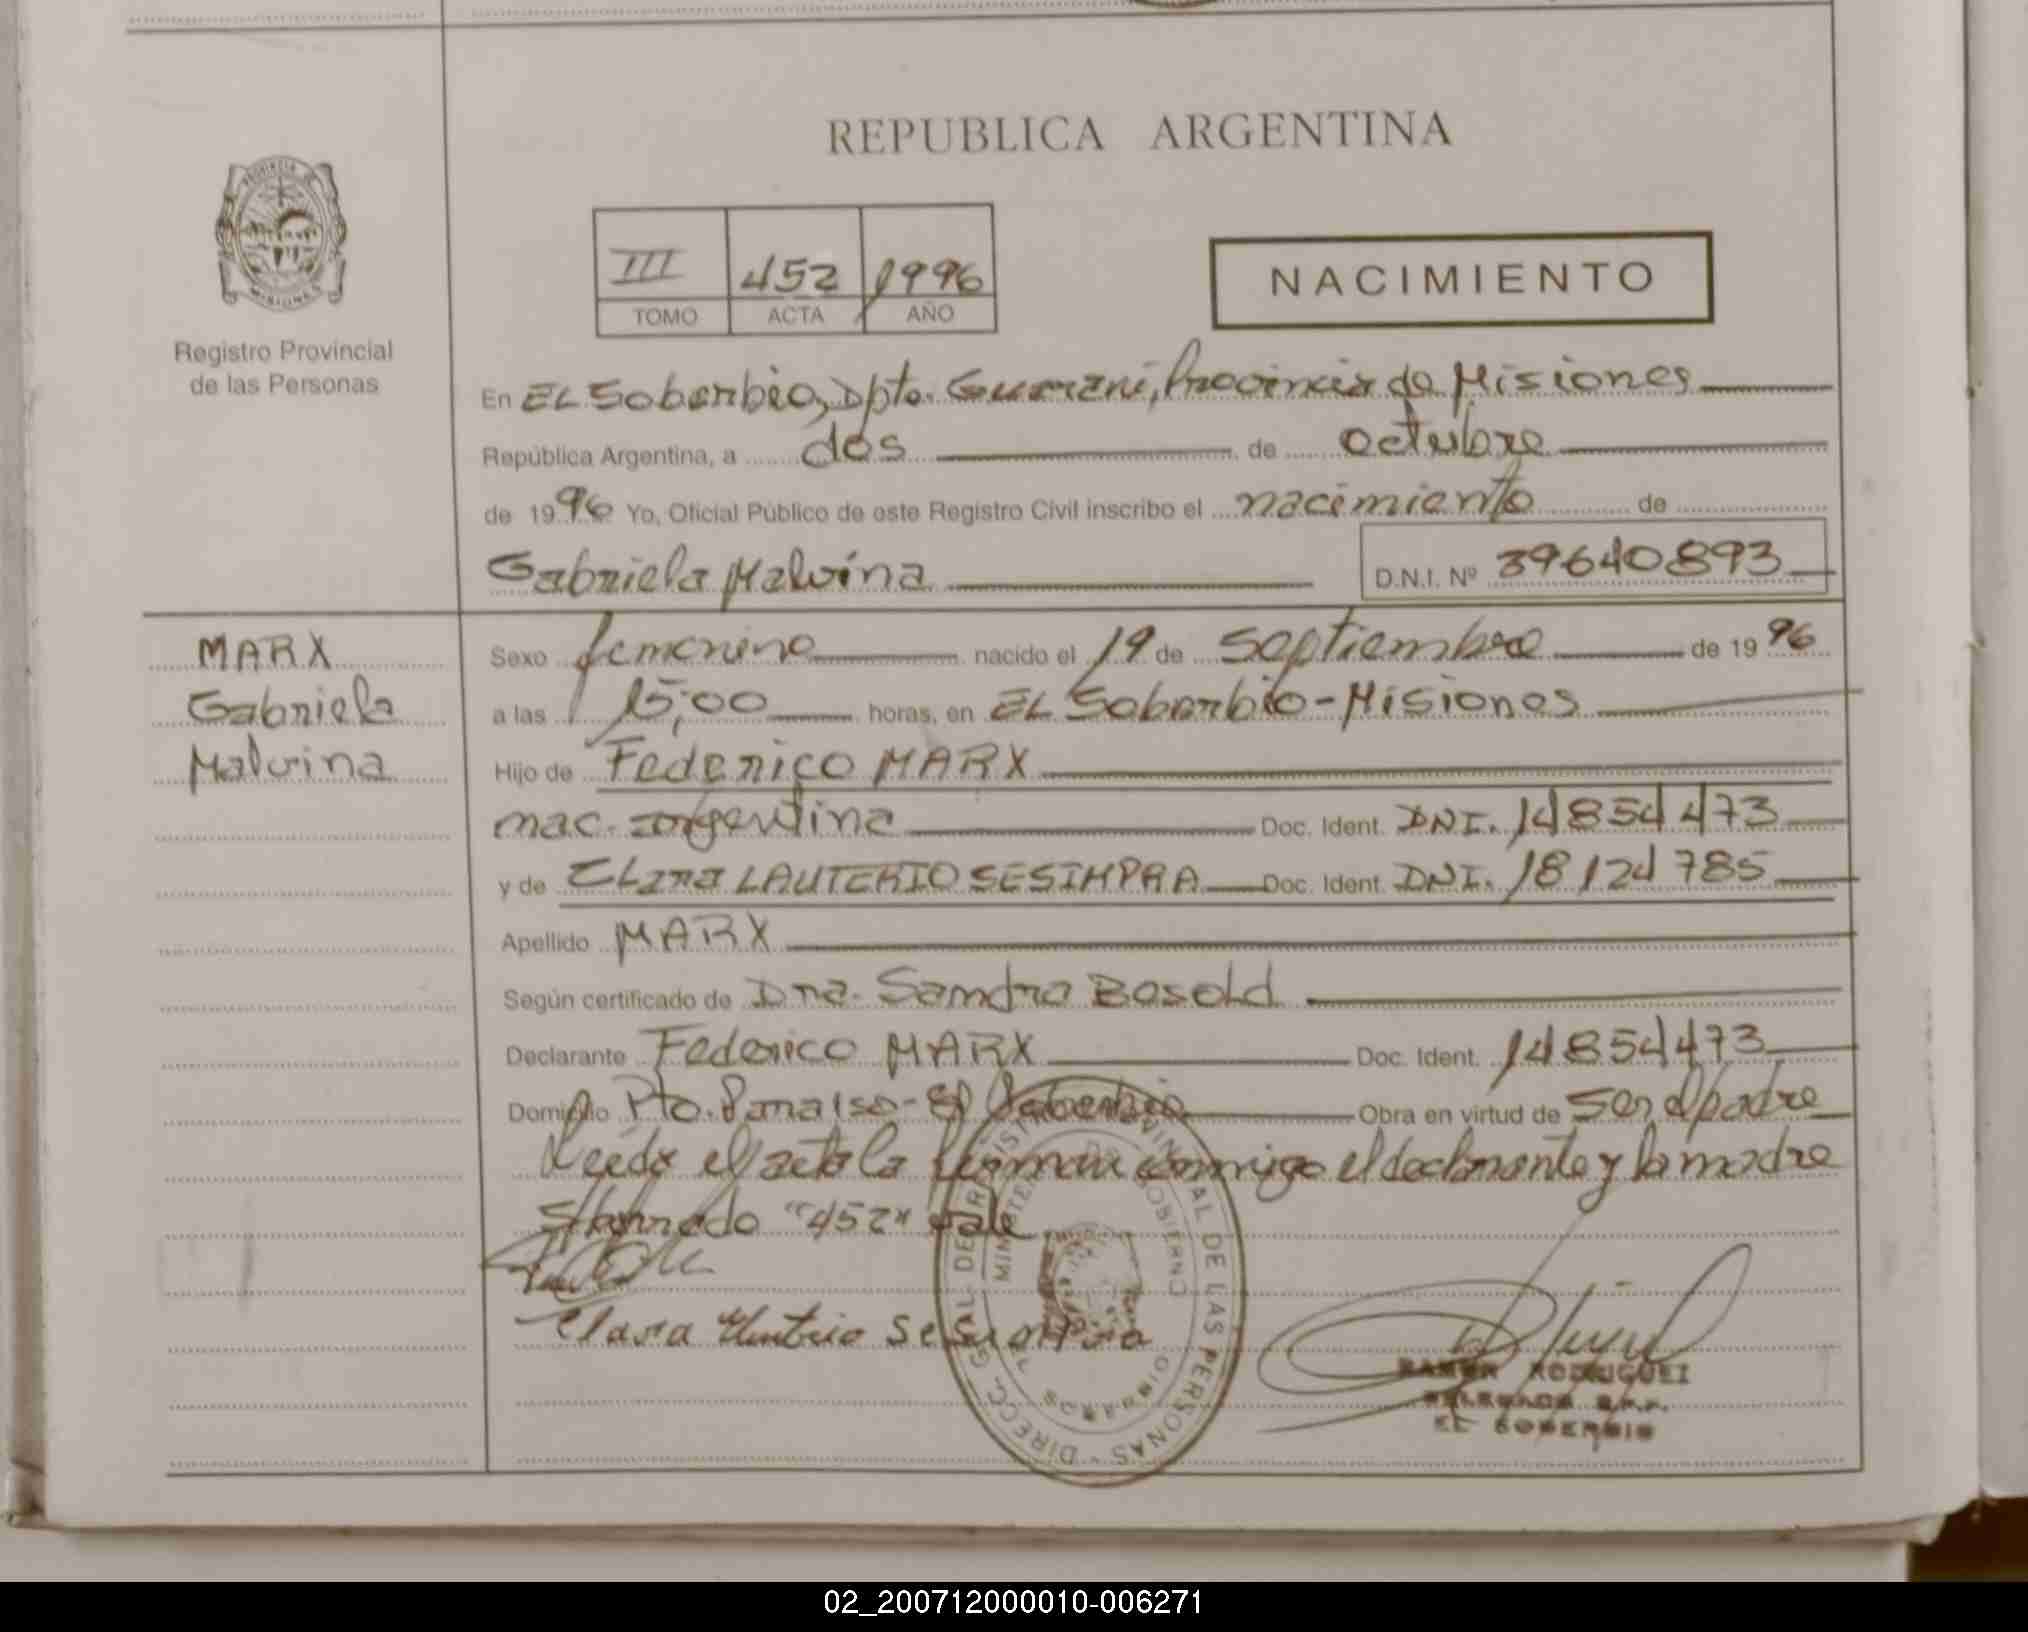 REPUBLICA ARGENTINA
PROVINCIA DE
MISIONES
Registro Provincial
de las Personas
III 452 1996
TOMO ACTA AÑO
NACIMIENTO
En EL Soberbio, Dpto. Guarani, Provincia de Misiones
República Argentina, a dos de octubre
de 1996 Yo, Oficial Público de este Registro Civil inscribo el nacimiento de
Gabriela Malvina D.N.I. Nº 39640893
MARX
Gabriela
Malvina
Sexo femenino nacido el 19 de Septiembre de 1996
a las 15,00 horas, en EL Soberbio-Misiones
Hijo de Federico MARX
nac. argentina Doc. Ident. DNI. 14854473
y de CLara LAUTERIO SESIMPRA Doc. Ident. DNI. 18124785
Apellido MARX
Según certificado de Dra. Sandra Bosold
Declarante Federico MARX Doc. Ident. 14854473
Domicilio Pto. Paraiso-El Soberbio Obra en virtud de ser el padre
Leida el acta la firman conmigo el declarante y la madre
"452" vale
Clara
DIRECC. GRAL. DEL REGISTRO PROVINCIAL DE LAS PERSONAS
RAMON RODRIGUEZ
EL SOBERBIO
02_200712000010-006271